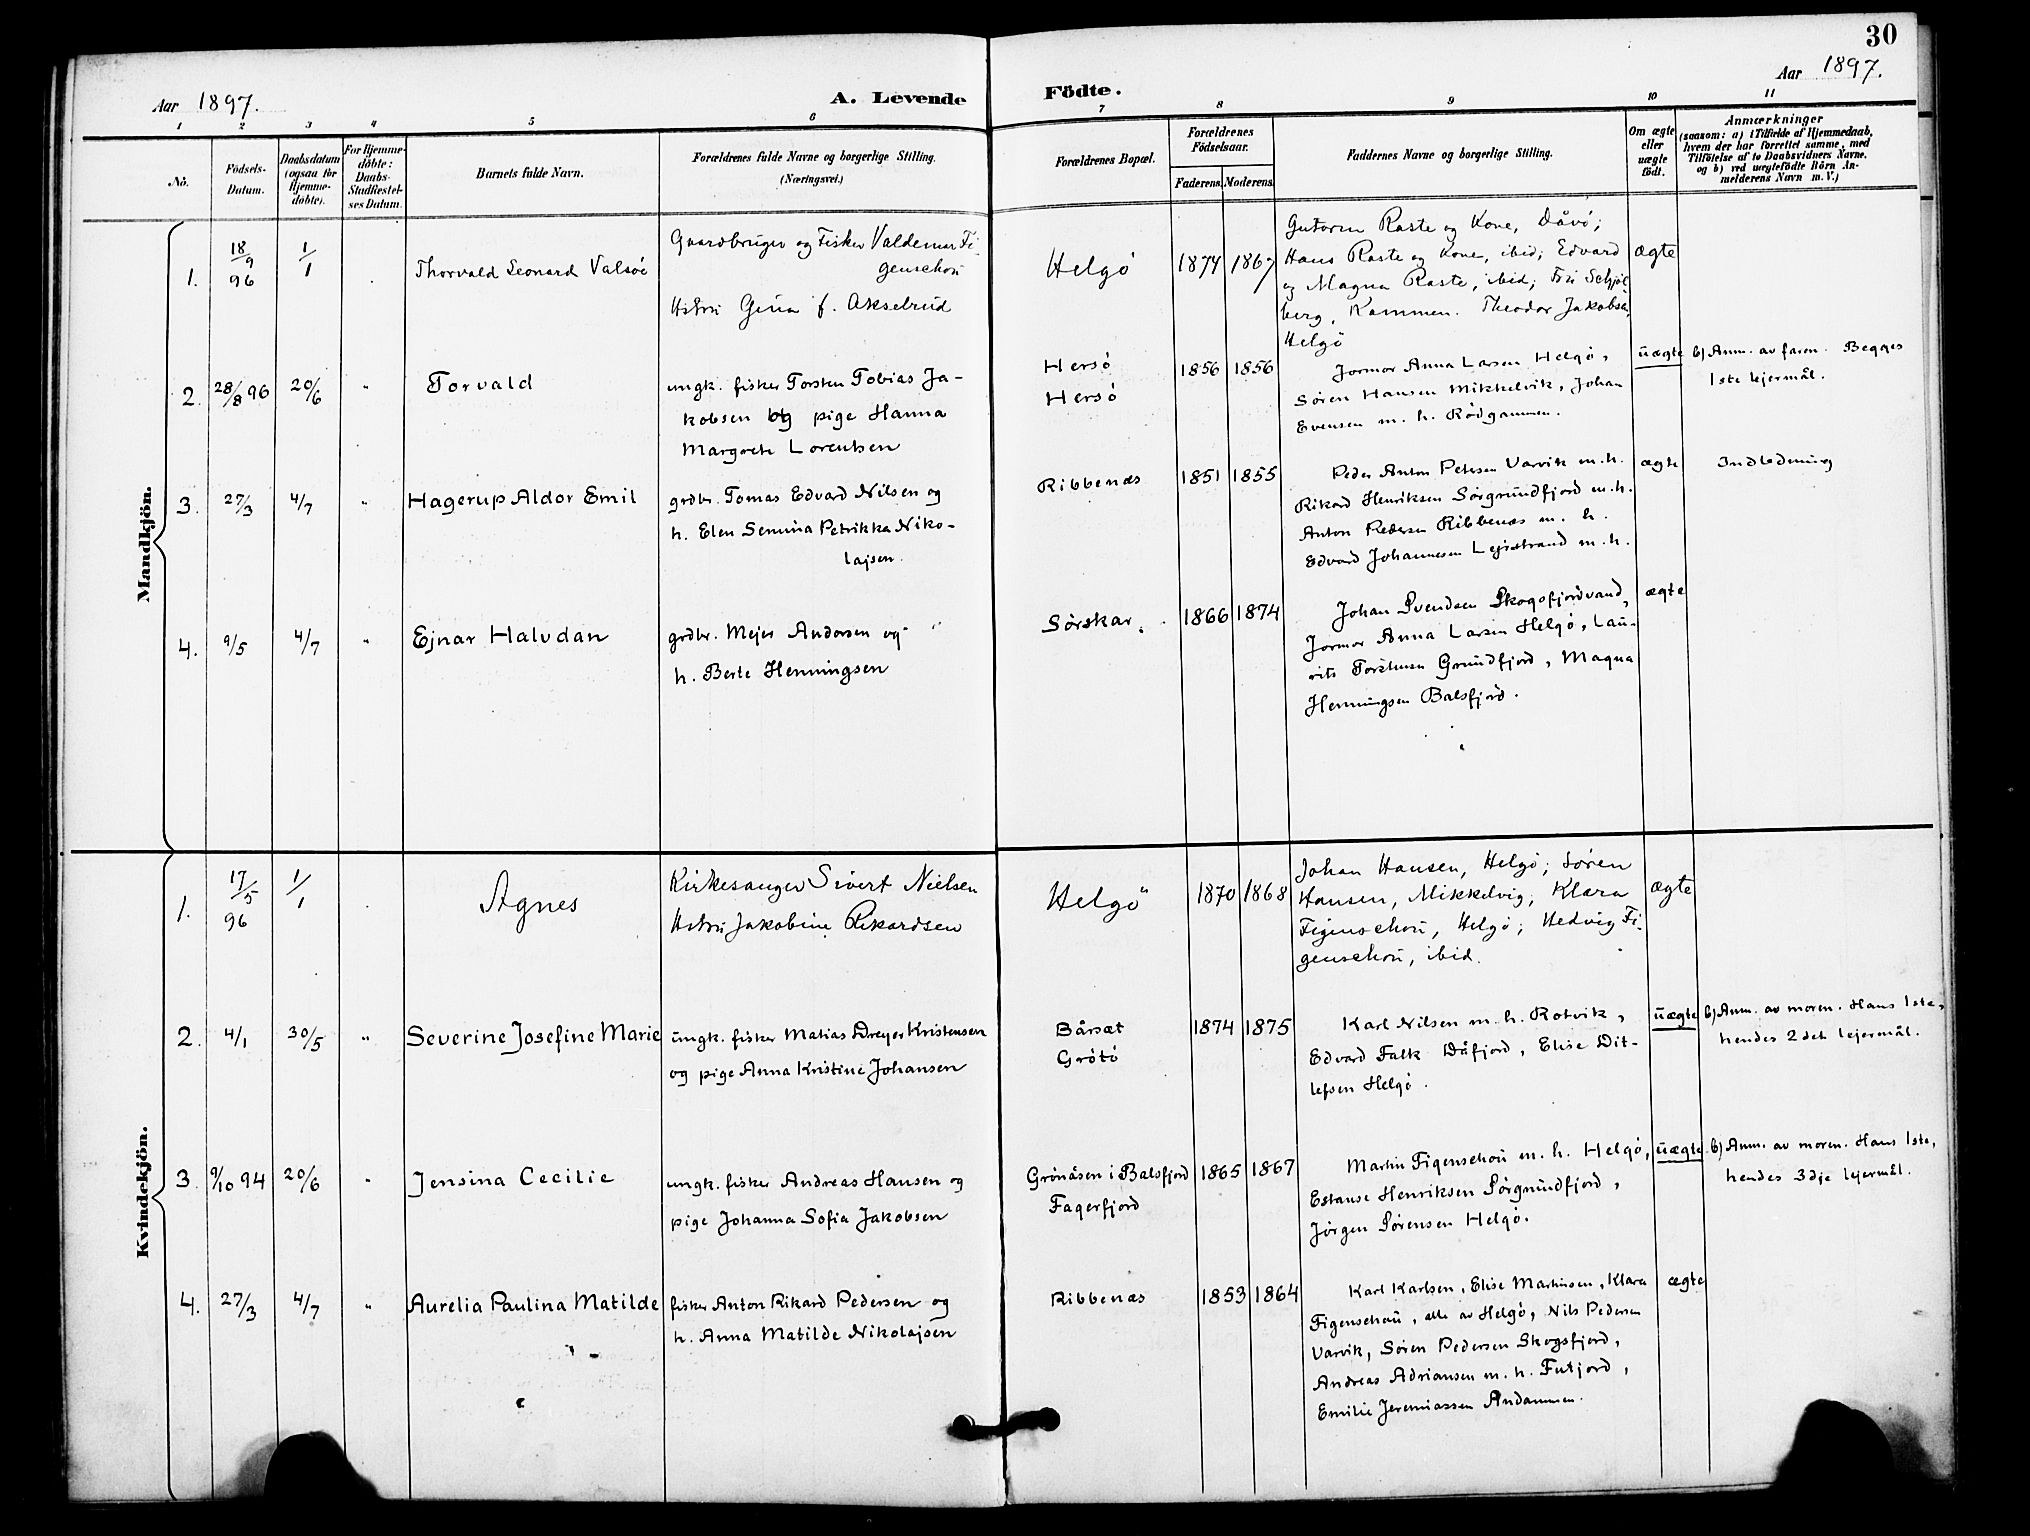 30
Aar 1897.
A. Levende
Födte.
Aar 1897.
1 2 3 4 5 6 7 8 9 10 11
No.
Födsels-
Datum.
Daabsdatum
(ogsaa for
Hjemme-
döbte).
For Hjemme-
döbte:
Daabs-
Stadfæstel-
ses Datum.
Barnets fulde Navn.
Forældrenes fulde Navne og borgerlige Stilling.
(Næringsvei.)
Forældrenes Bopæl.
Forældrenes
Födselsaar.
Faderens. Moderens.
Faddernes Navne og borgerlige Stilling.
Om ægte
eller
uægte
födt.
Anmærkninger
(saasom: a) i Tilfælde af Hjemmedaab,
hvem der har forrettet samme, med
Tilföielse af to Daabsvidners Navne,
og b) ved uægtefödte Börn An-
melderens Navn m. V.)
Mandkjön.
1.
18/9
96
1/1
Thorvald Leonard Valsöe
Gaardbruger og Fisker Valdemar Fi-
genschou
Hstru Gina f. Akselrud
Helgö
1874 1867
Guttorm Raste og Kone, Dåvö;
Hans Raste og Kone, ibid; Edvard
og Magna Raste, ibid; Fru Schjöl
berg, Kammen. Theodor Jakobsen,
Helgö
ægte
2.
28/8 96
20/6
"
Torvald
ungk. fisker Torsten Tobias Ja-
kobsen og pige Hanna
Margrete Lorentsen
Hersö
Hersö
1856 1856
Jormor Anna Larsen Helgö,
Sören Hansen Mikkelvik, Johan
Evensen m. h. Rödgammen.
uægte
b) Anm. av faren. Begges
1ste lejermål.
3.
27/3
4/7
"
Hagerup Aldor Emil
grdbr. Tomas Edvard Nilsen og
h. Elen Semina Petrikka Niko-
lajsen.
Ribbenæs
1851 1855
Peder Anton Petersen Varvik m.h.
Rikard Henriksen Sørgrundfjord m.h.
Anton Pedersen Ribbenæs m. h.
Edvard Johannesen Lejrstrand m.h.
ægte
Indledning
4.
9/5
4/7
"
Ejnar Halvdan
grdbr. Mejer Andorsen og
h. Berte Henningsen
Sörskar.
1866 1874
Johan Svendsen Skogsfjordvand,
Jormor Anna Larsen Helgö, Lau-
rits Torstensen Grundfjord, Magna
Henningsen Balsfjord.
ægte
Kvindekjön.
1.
17/5
96
1/1
Agnes
Kirkesanger Sivert Nielsen
Hstru Jakobine Rikardsen
Helgö
1870 1868
Johan Hansen, Helgö; Sören
Hansen, Mikkelvig; Klara
Figenschou, Helgö; Hedvig Fi-
genschou, ibid.
ægte
2.
4/1
30/5
"
Severine Josefine Marie
ungk. fisker Matias Dreyer Kristensen
og pige Anna Kristine Johansen
Bårsæt
Grötö
1874 1875
Karl Nilsen m. h. Rotvik,
Edvard Falk Dåfjord, Elise Dit-
lefsen Helgö.
uægte
b) Anm. av moren. Hans 1ste,
hendes 2det lejermål.
3.
9/10 94
20/6
"
Jensina Cecilie
ungk. fisker Andreas Hansen og
pige Johanna Sofia Jakobsen
Grönåsen i Balsfjord
Fagerfjord
1865 1867
Martin Figenschou m. h. Helgö,
Estanse Henriksen Sørgrundfjord,
Jörgen Sörensen Helgö.
uægte
b) Anm. av moren. Hans 1ste,
hendes 3dje lejermål.
4.
27/3
4/7
"
Aurelia Paulina Matilde
fisker Anton Rikard Pedersen og
h. Anna Matilde Nikolajsen
Ribbenæs
1853 1864
Karl Karlsen, Elise Martinsen, Klara
Figenschou, alle av Helgö, Nils Pedersen
Varvik, Sören Pedersen Skogsfjord,
Andreas Adriansen m. h. Futjord,
Emilie Jeremiassen Andammen.
ægte